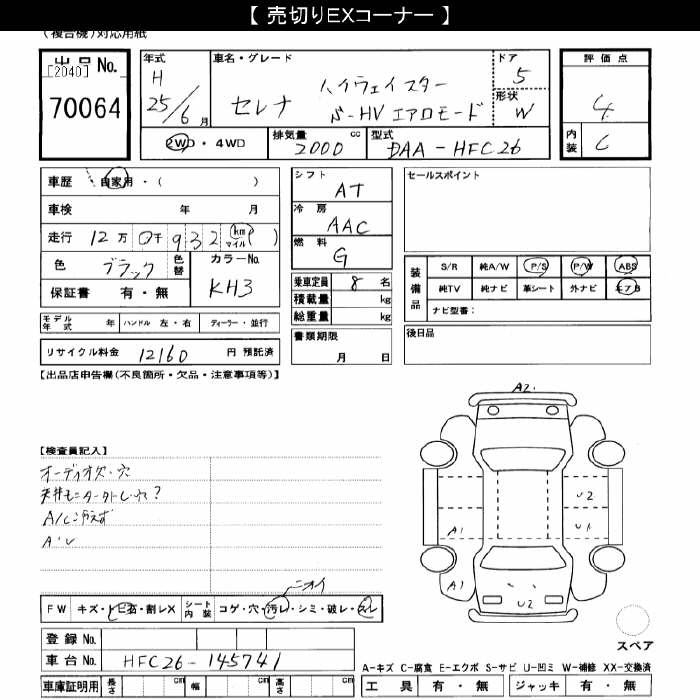 【 売切りEXコーナー 】
(複合機)対応用紙
出品 No.
[2040]
70064
年式
H
25/6 月
車名・グレード
セレナ
ハイウェイスター
S-HV エアロモード
ドア
5
形状
W
評価点
4
内装
C
2WD・4WD
排気量 cc
2000
型式
DAA-HFC26
車歴 自家用・( )
車検 年 月
走行 12 万 0 千 932 km マイル ( )
色 ブラック 色替
カラーNo.
KH3
保証書 有・無
シフト
AT
冷房
AAC
燃料
G
乗車定員 8 名
積載量 kg
総重量 kg
セールスポイント
装備品
S/R 純A/W P/S P/W ABS
純TV 純ナビ 革シート 外ナビ エアB
ナビ型番:
モデル年式 年 ハンドル 左・右 ディーラー・並行
リサイクル料金 12160 円 預託済
書類期限
月 日
後日品
【出品店申告欄(不良箇所・欠品・注意事項等)】
A2
【検査員記入】
オーディオ欠・穴
天井モニター
A/C冷えず
A・U
U2
A1
U1
A1
U2
ニオイ
FW キズ・トビ石・割レX シート内装 コゲ・穴・汚レ・シミ・破レ・スレ
登録 No.
車台 No. HFC26-145741
スペア
A-キズ C-腐食 E-エクボ S-サビ U-凹ミ W-補修 XX-交換済
車庫証明用 長さ cm 幅 cm 高さ cm
工具 有・無 ジャッキ 有・無